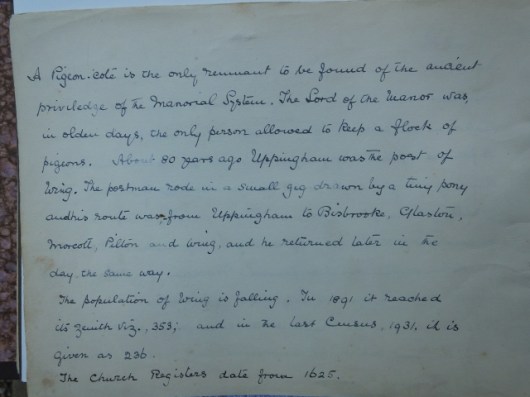 A Pigeon-cote is the only remnant to be found of the ancient
priviledge of the Manorial System. The Lord of the Manor was,
in olden days, the only person allowed to keep a flock of
pigeons. About 80 years ago Uppingham was the post of
Wing. The postman rode in a small gig drawn by a tiny pony
and his route was, from Uppingham to Bisbrooke, Glaston,
Morcott, Pilton and Wing, and he returned later in the
day the same way.
The population of Wing is falling. In 1891 it reached
its zenith viz., 353; and in the last Census, 1931, it is
given as 236.
The Church Registers date from 1625.